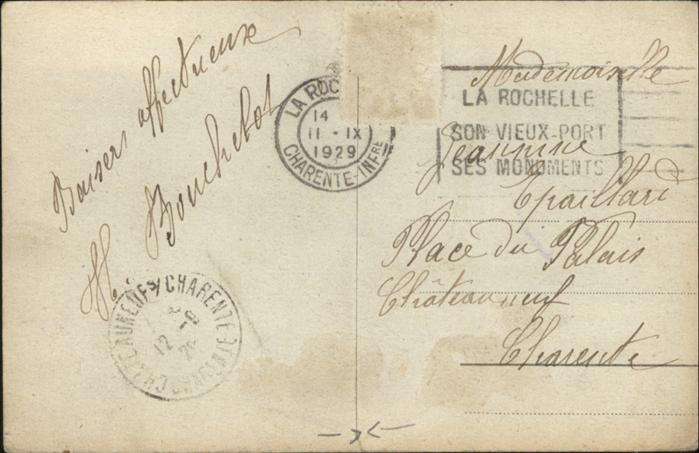 Baisers affectueux
Bouchelot
LA ROC
14
11 - IX
1929
CHARENTE-INFRE
LA ROCHELLE
SON VIEUX-PORT
SES MONUMENTS
Mademoiselle
Jeannine
Epaillard
Place du Palais
Châteauneuf
Charente
CHATEAUNEUF S/ CHARENTE
12